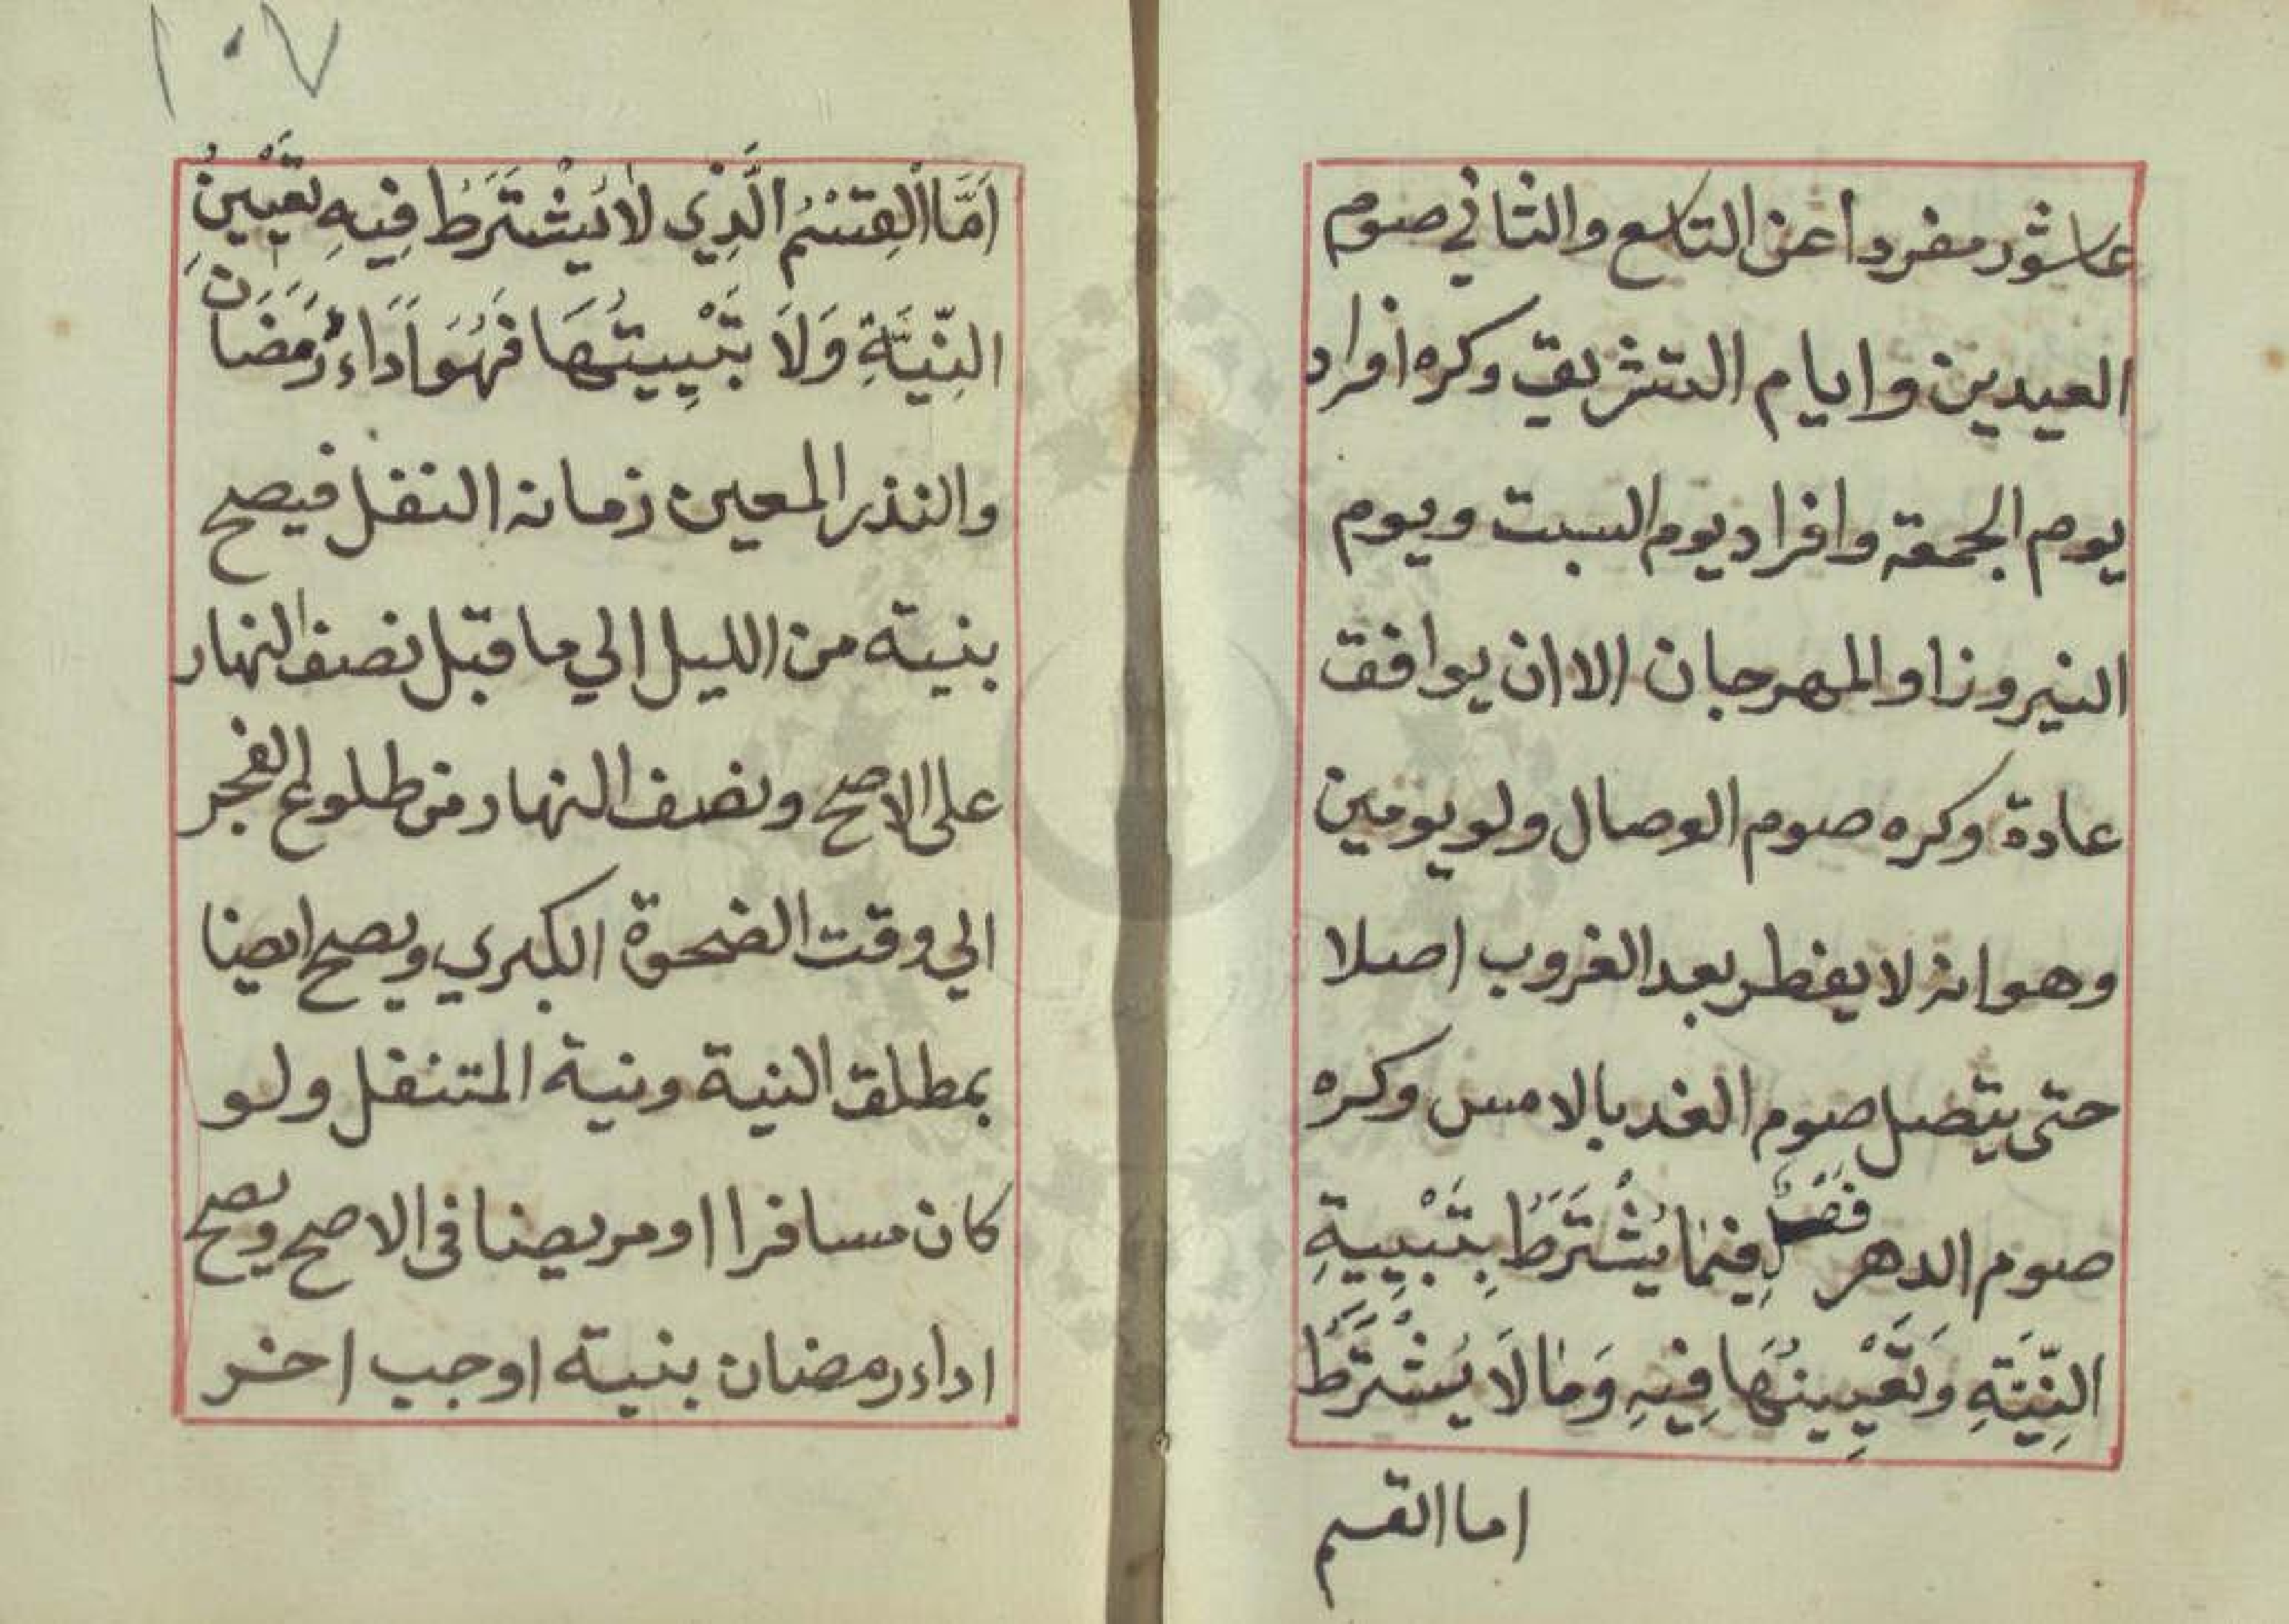 عاشور مفردا عن التاسع والثاني صوم
العيدين وايام التشريق وكره افراد
يوم الجمعة وافراد يوم السبت ويوم
النيروز او المهرجان الا ان يوافق
عادة وكره صوم الوصال ولو يومين
وهو انه لا يفطر بعد الغروب اصلا
حتى يتصل صوم الغد بالامس وكره
صوم الدهر فَصْلٌ فِيمَا يُشْتَرَطُ بِتَبْيِيةِ
النِّيَّةِ وَتَعْيِينُهَا فِيهِ وَمَا لَا يَشْتَرَطُ
اما القسم
١٠٧
اَمَّا الْقِسْمُ الَّذِي لَا يُشْتَرَطُ فِيهِ تَعْيِينُ
النِّيَّةِ وَلَا تَبْيِيتُهَا فَهُوَ اَدَاءُ رَمَضَانَ
والنذر المعين زمانه النفل فيصح
بنية من الليل الي ما قبل نصف النهار
على الاصح ونصف النهار من طلوع الفجر
الي وقت الضحوة الكبري ويصح ايضا
بمطلق النية ونية المتنفل ولو
كان مسافرا او مريضا فى الاصح ويصح
اداء رمضان بنية اوجب اخر